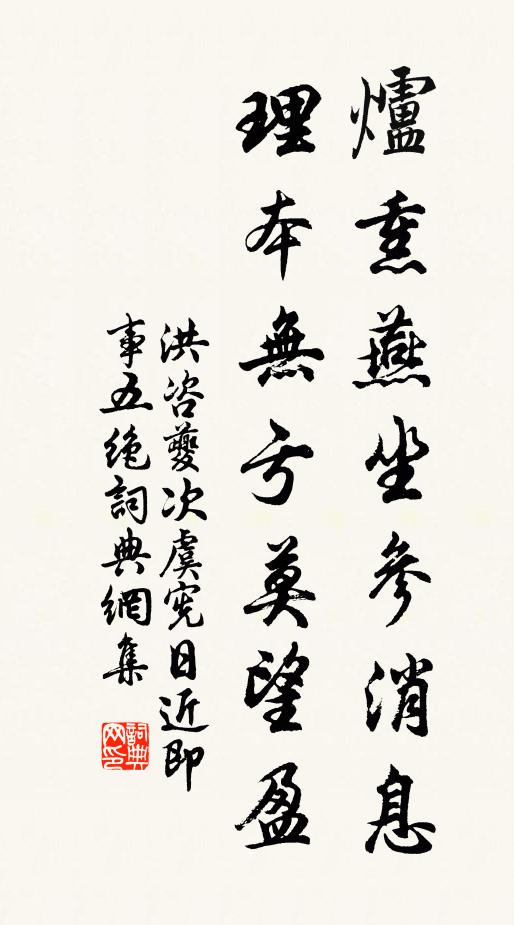 爐熏燕坐參消息
理本無亏莫望盈
洪咨夔次虞宪日近即
事五绝詞典網集
詞典
网印